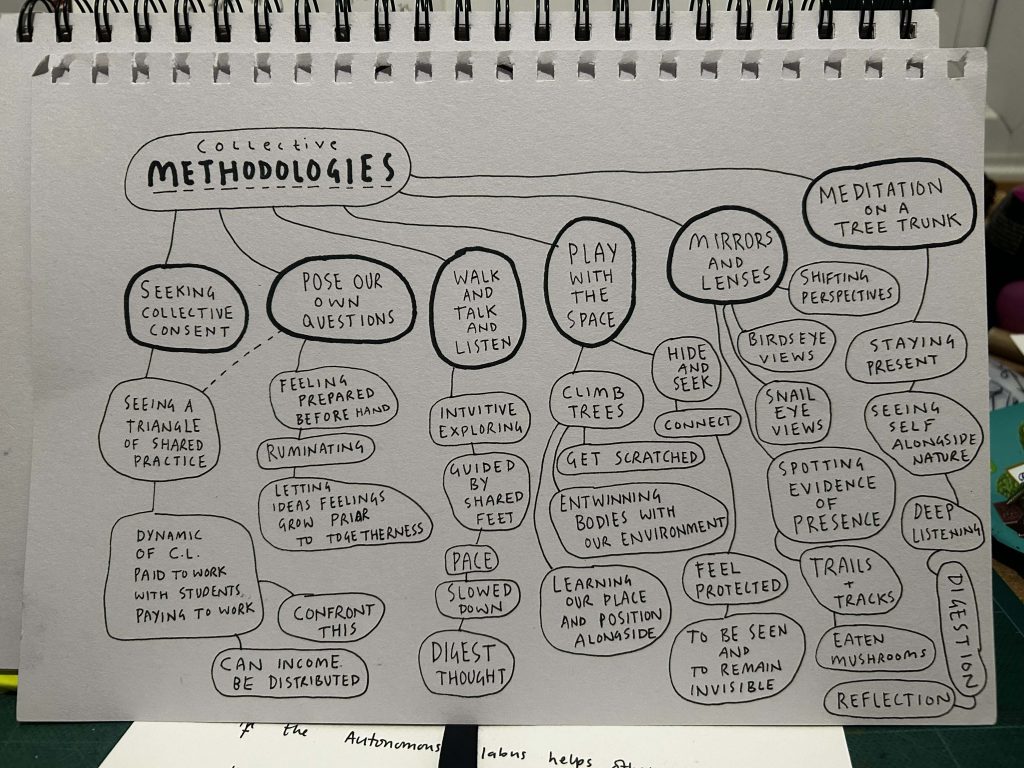 Collective
METHODOLOGIES
SEEKING
COLLECTIVE
CONSENT
SEEING A
TRIANGLE
OF SHARED
PRACTICE
DYNAMIC
OF C.L.
PAID TO WORK
WITH STUDENTS
PAYING TO WORK
CONFRONT
THIS
CAN INCOME
BE DISTRIBUTED
POSE OUR
OWN
QUESTIONS
FEELING
PREPARED
BEFORE HAND
RUMINATING
LETTING
IDEAS FEELINGS
GROW PRIOR
TO TOGETHERNESS
WALK
AND
TALK
AND
LISTEN
INTUITIVE
EXPLORING
GUIDED
BY
SHARED
FEET
PACE
SLOWED
DOWN
DIGEST
THOUGHT
PLAY
WITH
THE
SPACE
CLIMB
TREES
GET SCRATCHED
ENTWINNING
BODIES WITH
OUR ENVIRONMENT
LEARNING
OUR PLACE
AND POSITION
ALONGSIDE
HIDE
AND
SEEK
CONNECT
MIRRORS
AND
LENSES
SHIFTING
PERSPECTIVES
BIRDSEYE
VIEWS
SNAIL
EYE
VIEWS
SPOTTING
EVIDENCE
OF
PRESENCE
TRAILS
+
TRACKS
EATEN
MUSHROOMS
FEEL
PROTECTED
TO BE SEEN
AND
TO REMAIN
INVISIBLE
MEDITATION
ON A
TREE TRUNK
STAYING
PRESENT
SEEING
SELF
ALONGSIDE
NATURE
DEEP
LISTENING
DIGESTION
REFLECTION
if the Autonomous helps